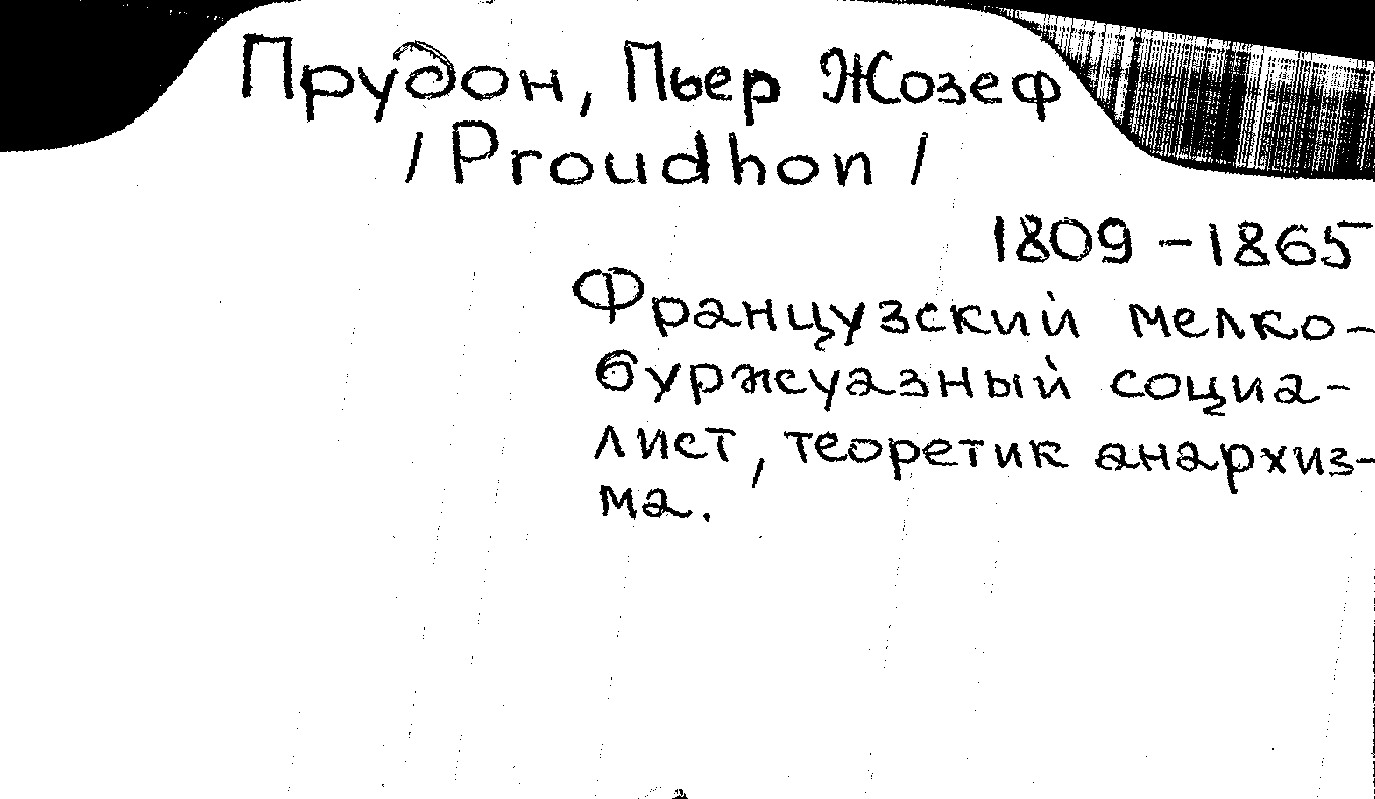 Прудон, Пьер Жозеф
/ Proudhon /
1809 - 1865
Французский мелко-
буржуазный социа-
лист, теоретик анархиз-
ма.